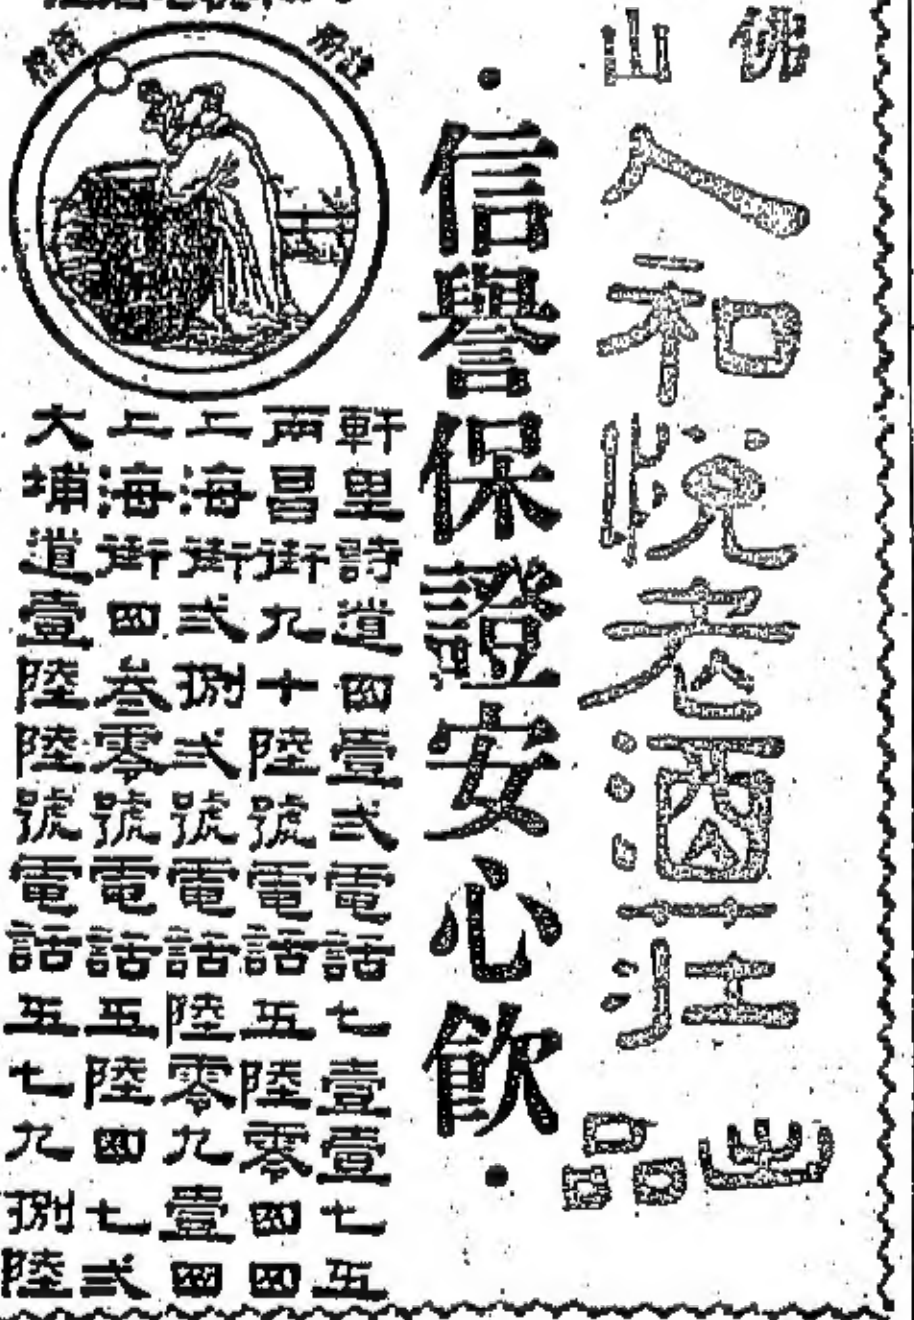 佛山
人和悅老酒莊
出品
·信譽保證安心飲·
註冊
商標
軒里詩道四壹弍電話七壹壹七五
兩昌街九十陸號電話五陸零四四
上海街弍捌弍號電話陸零九壹四
上海街四叁零號電話五陸四七弍
大埔道壹陸陸號電話五七九捌陸